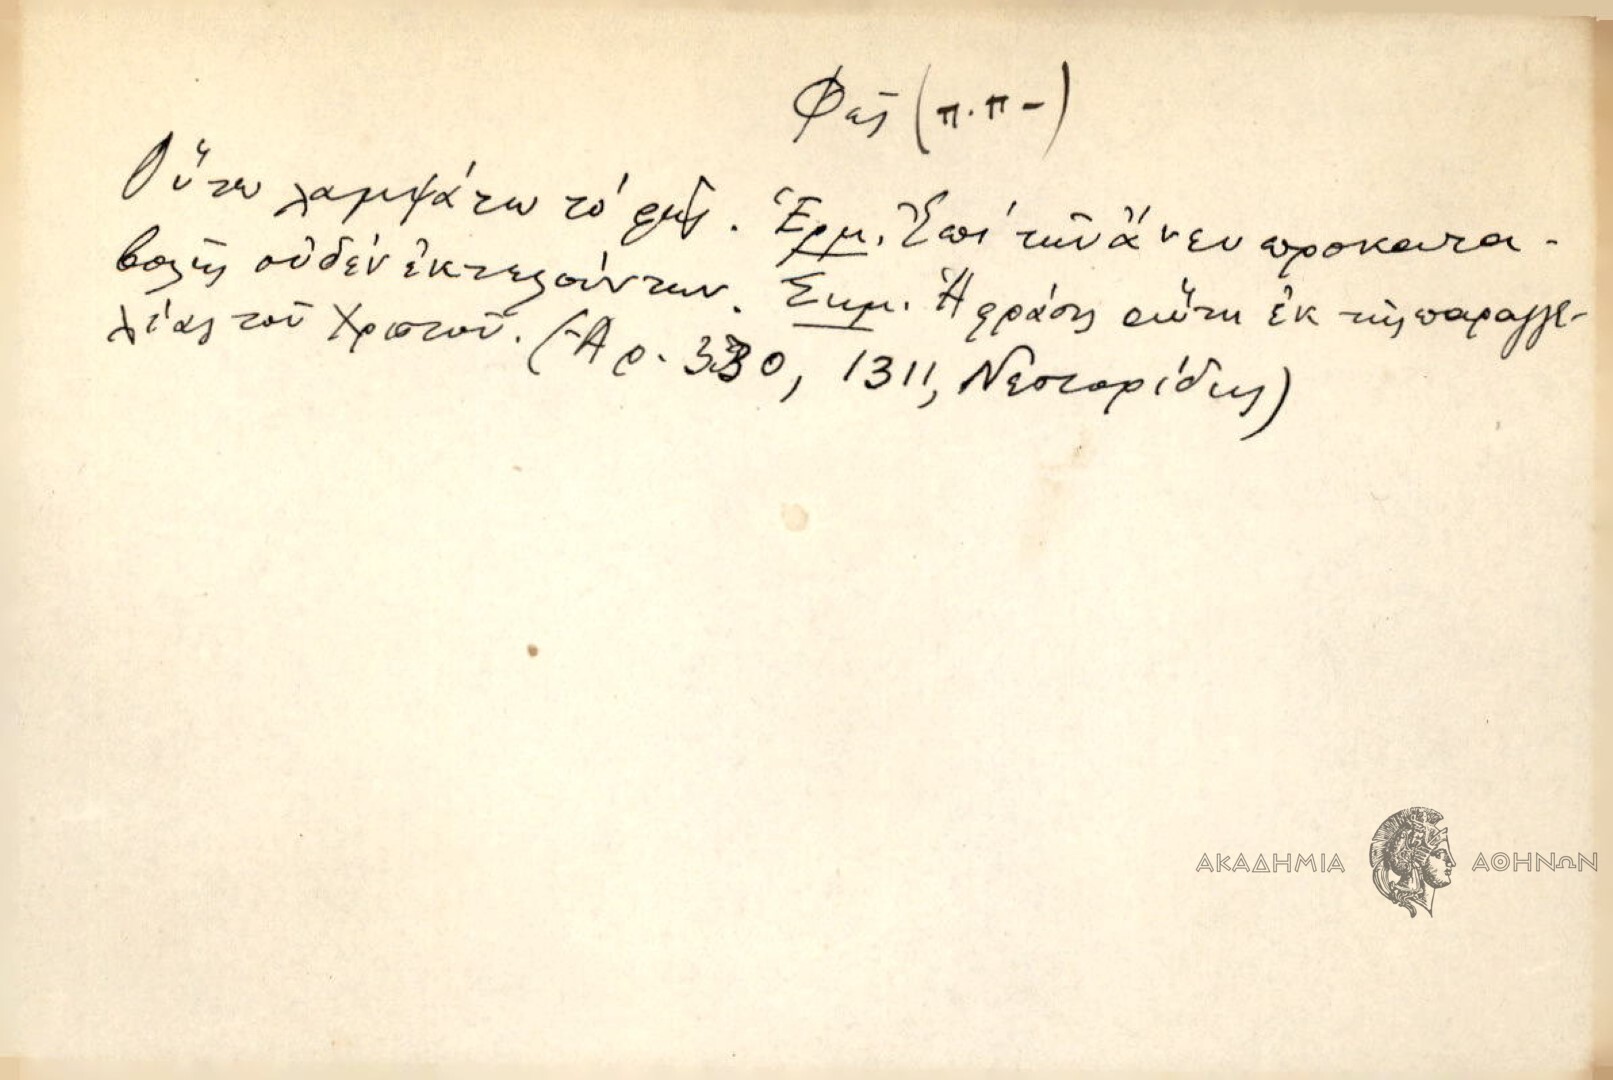 Φῶς (π.π-)
Οὕτω λαμψάτω τό φῶς. Ἑρμ. Ἐπί τῶν ἄνευ προκατα-
βολῆς οὐδέν ἐκτελούντων. Σημ. Ἡ φράσις αὕτη ἐκ τῆς παραγγε-
λίας τοῦ Χριστοῦ. (Ἀρ. 330, 1311, Νεστορίδης)
ΑΚΑΔΗΜΙΑ ΑΘΗΝΩΝ